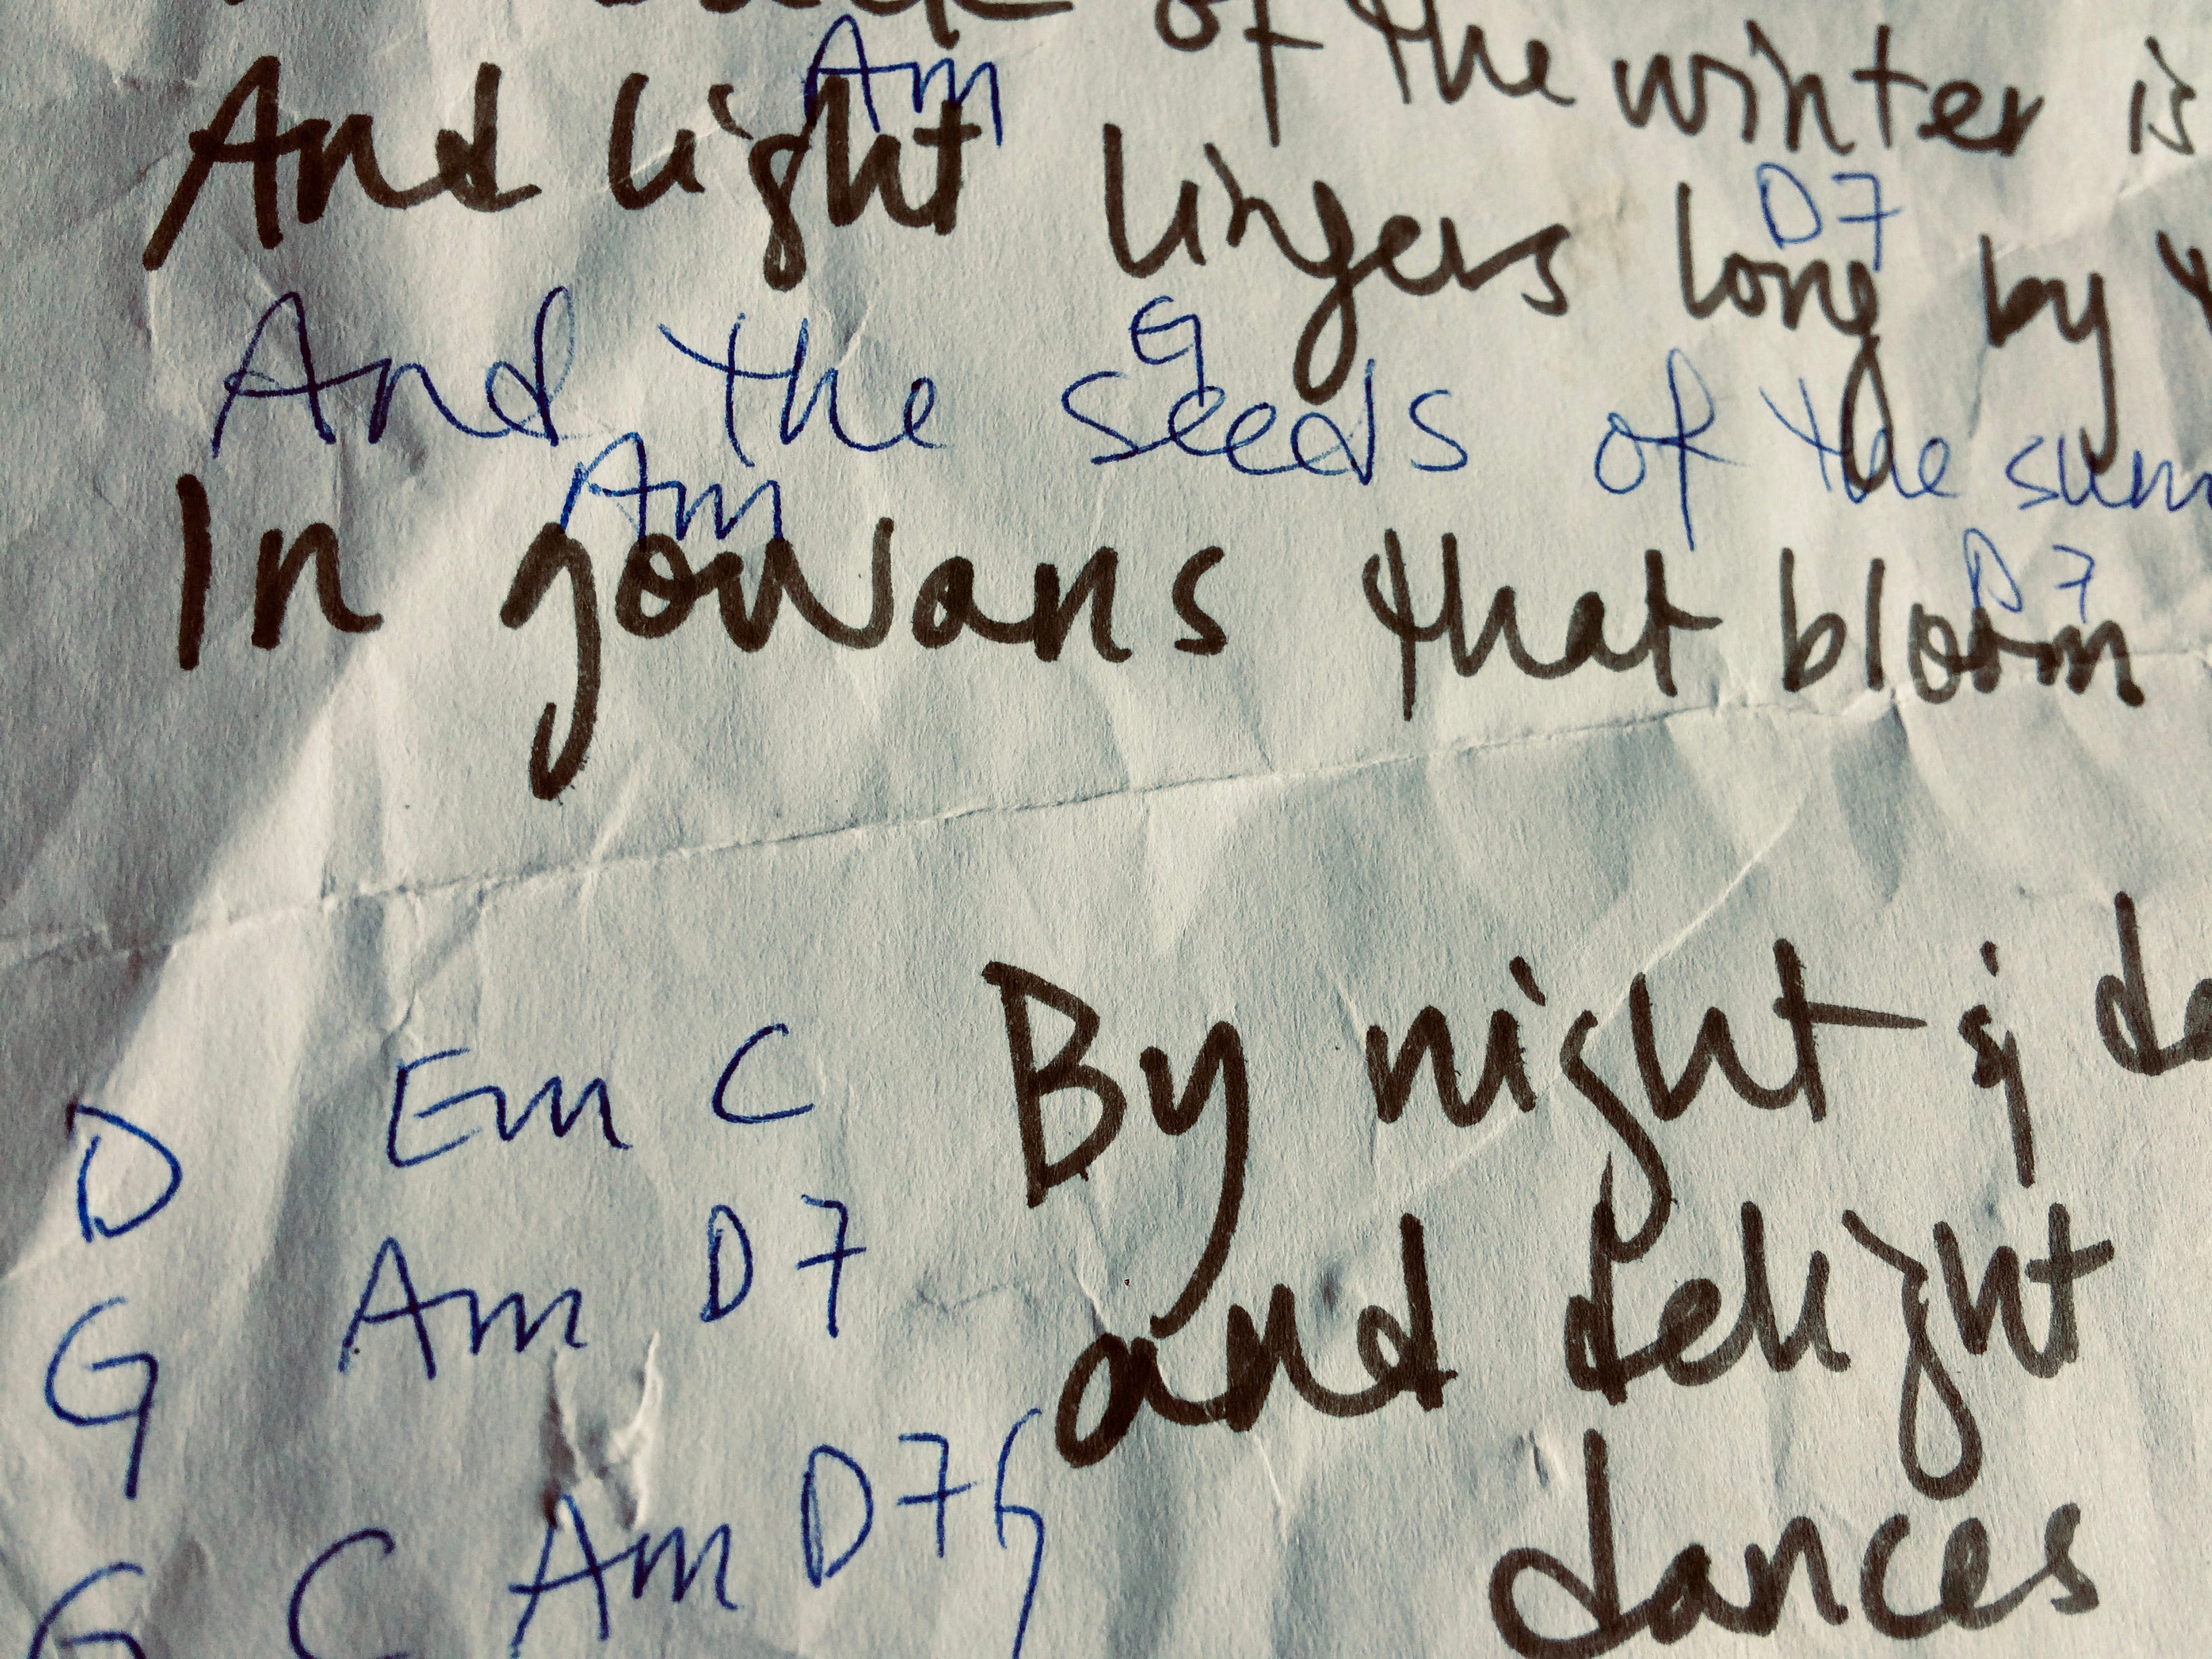 of the winter is
Am
And light lingers long by
D7
And the seeds of the
G
Am
In gowans that bloom
D7
By night & 
D Em C
and delight
G Am D7
dances
G C Am D7 G